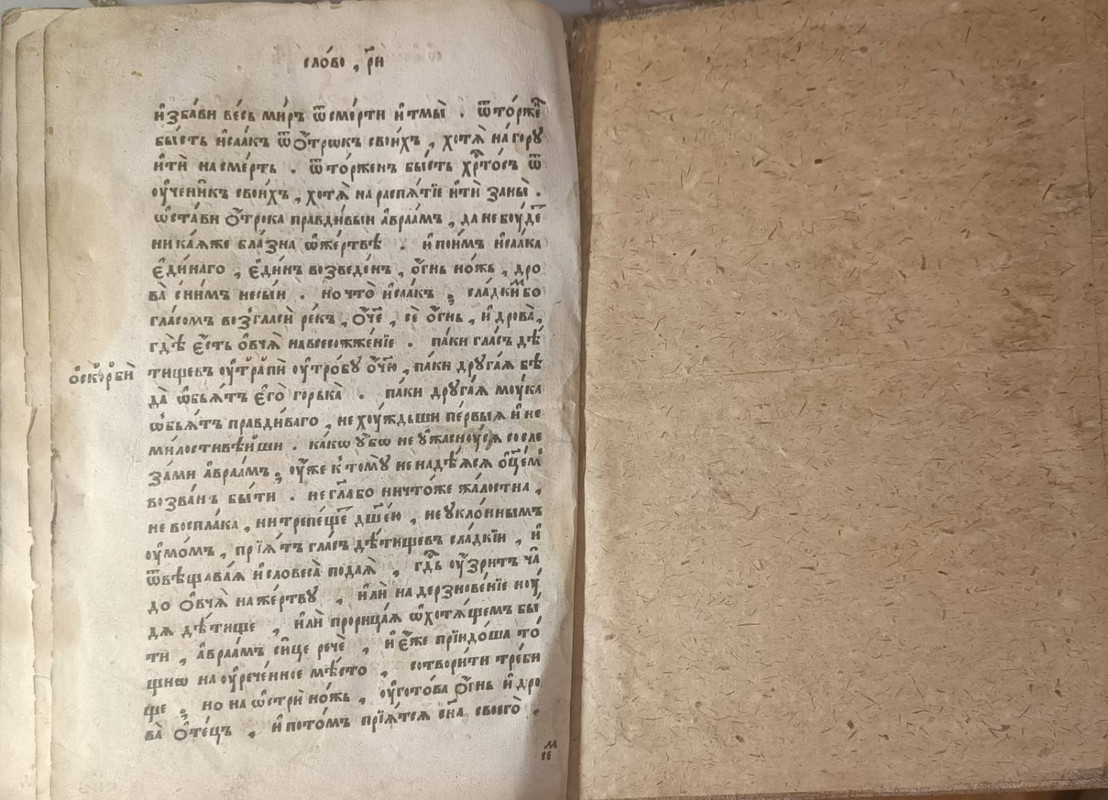 сло́во , р҃и
и҆збави ве́сь ми́ръ ѿ сме́рти и҆ тмы̀ . ѿто́рже
бы́сть и҆саа́къ ѿ о҆́трѡкъ свои́хъ , хотѧ̀ на го́ру
и҆тѝ на сме́рть . ѿто́рженъ бы́сть хр҇то́съ ѿ
оу҆чени́къ свои́хъ , хотѧ̀ на распѧ́тїе и҆тѝ за ны̀ .
ѡ҆ста́ви о҆́трока пра́вдивыи а҆враа́мъ , да не боу́де
ни ка́ѧже бла́зна ѡ҆ же́ртвѣ . и҆ пои́мъ и҆саа́ка
є҆ди́наго , є҆ди́нъ возведе́нъ , о҆́гнь но́жъ , дро
ва̀ с ни́мъ несы́и . но что̀ и҆саа́къ , сла́дкимъ бо
гла́сомъ возгласѝ ре́къ , о҆́ч҃е , сѐ о҆́гнь , и҆ дрова̀ ,
гдѣ̀ є҆́сть о҆вчѧ̀ на всесожже́нїе . па́ки гла́съ дѣ́
тищевъ оу҆трапѝ оу҆тро́бу о҆́ч҃ю , па́ки друга́ѧ бѣ
о҆скорбѝ
да̀ ѡ҆бъѧ́тъ є҆го̀ го́рька . па́ки друга́ѧ моу́ка
ѡ҆бъѧ́тъ пра́вдиваго , не хоу́ждьши пе́рвыѧ и҆ не
ми́лостивѣиши . ка́кѡ у҆́бѡ не у҆жасноу́сѧ со сле
за́ми а҆враа́мъ , оу҆́же к̾ то́му не надѣ́ѧсѧ о҆ц҃е́мъ
возва́нъ бы́ти . не гл҃а бо ничто́же жа́лостна ,
не воспла́ка , ни трепе́ще дш҃е́ю , не укло́ннымъ
оу҆мо́мъ , прїѧ́тъ гла́съ дѣ́тищевъ сла́дкїи , и҆
ѿвѣщава́ѧ и҆ словеса̀ пода́ѧ , гд҇ь оу҆́зритъ ча́
до о҆вчѧ̀ на же́ртву , и҆лѝ на дерзнове́нїе ноу́
дѧ дѣ́тище , и҆лѝ прори́цаѧ ѡ҆ хотѧ́щемъ бы́
ти , а҆враа́мъ си́це речѐ , и҆ є҆́же прїидо́ша то́
щїѡ на оу҆рече́нное мѣ́сто , сотвори́ти тре́би
ще , но на ѡ҆стрѝ но́жъ , оу҆гото́ва о҆́гнь и҆ дро
ва̀ о҆те́цъ , и҆ пото́мъ прїѧ́тсѧ сн҃а своего̀ ,